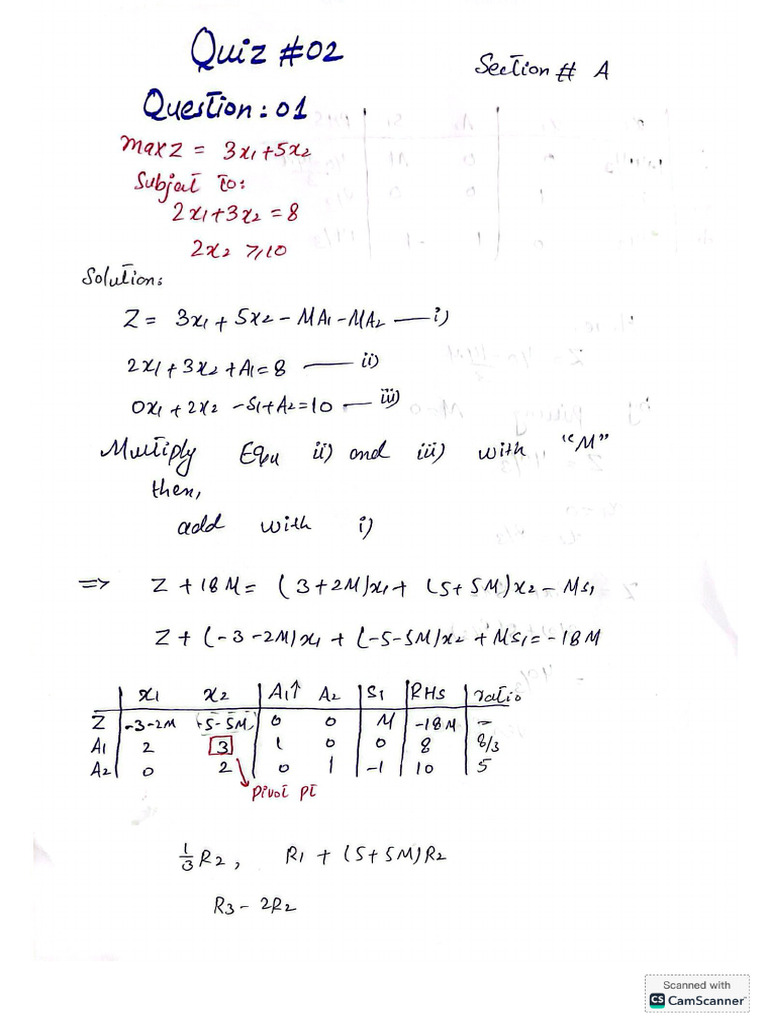 Quiz #02
Section # A
Question: 01
Max Z = 3x₁+5x₂
Subject to:
2x₁+3x₂ = 8
2x₂ ≥ 10
Solution:
Z = 3x₁ + 5x₂ - MA₁ - MA₂ — i)
2x₁ + 3x₂ + A₁ = 8 — ii)
0x₁ + 2x₂ - S₁ + A₂ = 10 — iii)
Multiply Equ ii) and iii) with "M"
then,
add with i)
=> Z + 18M = (3+2M)x₁ + (5+5M)x₂ - MS₁
Z + (-3-2M)x₁ + (-5-5M)x₂ + MS₁ = -18M
x₁ x₂ A₁↑ A₂ S₁ RHS ratio
Z -3-2M -5-5M 0 0 M -18M -
A₁ 2 3 1 0 0 8 8/3
A₂ 0 2 0 1 -1 10 5
Pivot pt
1/3 R₂, R₁ + (5+5M)R₂
R₃ - 2R₂
Scanned with
CS CamScanner